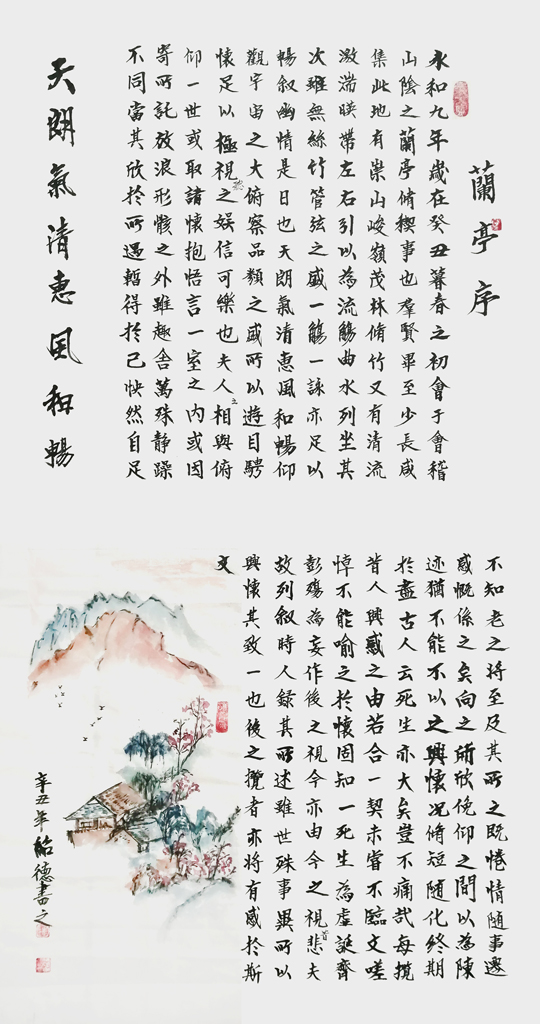 蘭亭序
永和九年歲在癸丑暮春之初會于會稽
山陰之蘭亭脩禊事也羣賢畢至少長咸
集此地有崇山峻嶺茂林脩竹又有清流
激湍暎帶左右引以為流觴曲水列坐其
次雖無絲竹管弦之盛一觴一詠亦足以
暢叙幽情是日也天朗氣清惠風和暢仰
觀宇宙之大俯察品類之盛所以遊目騁
懷足以極視聽之娛信可樂也夫人之相與俯
仰一世或取諸懷抱悟言一室之內或因
寄所託放浪形骸之外雖趣舍萬殊静躁
不同當其欣於所遇暫得於己怏然自足
天朗氣清惠風和暢
不知老之將至及其所之既惓情隨事遷
感慨係之矣向之所欣俛仰之間以為陳
迹猶不能不以之興懷況脩短隨化終期
於盡古人云死生亦大矣豈不痛哉每攬
昔人興感之由若合一契未嘗不臨文嗟
悼不能喻之於懷固知一死生為虛誕齊
彭殤為妄作後之視今亦由今之視昔悲夫
故列叙時人錄其所述雖世殊事異所以
興懷其致一也後之攬者亦將有感於斯
文
辛丑年德書之